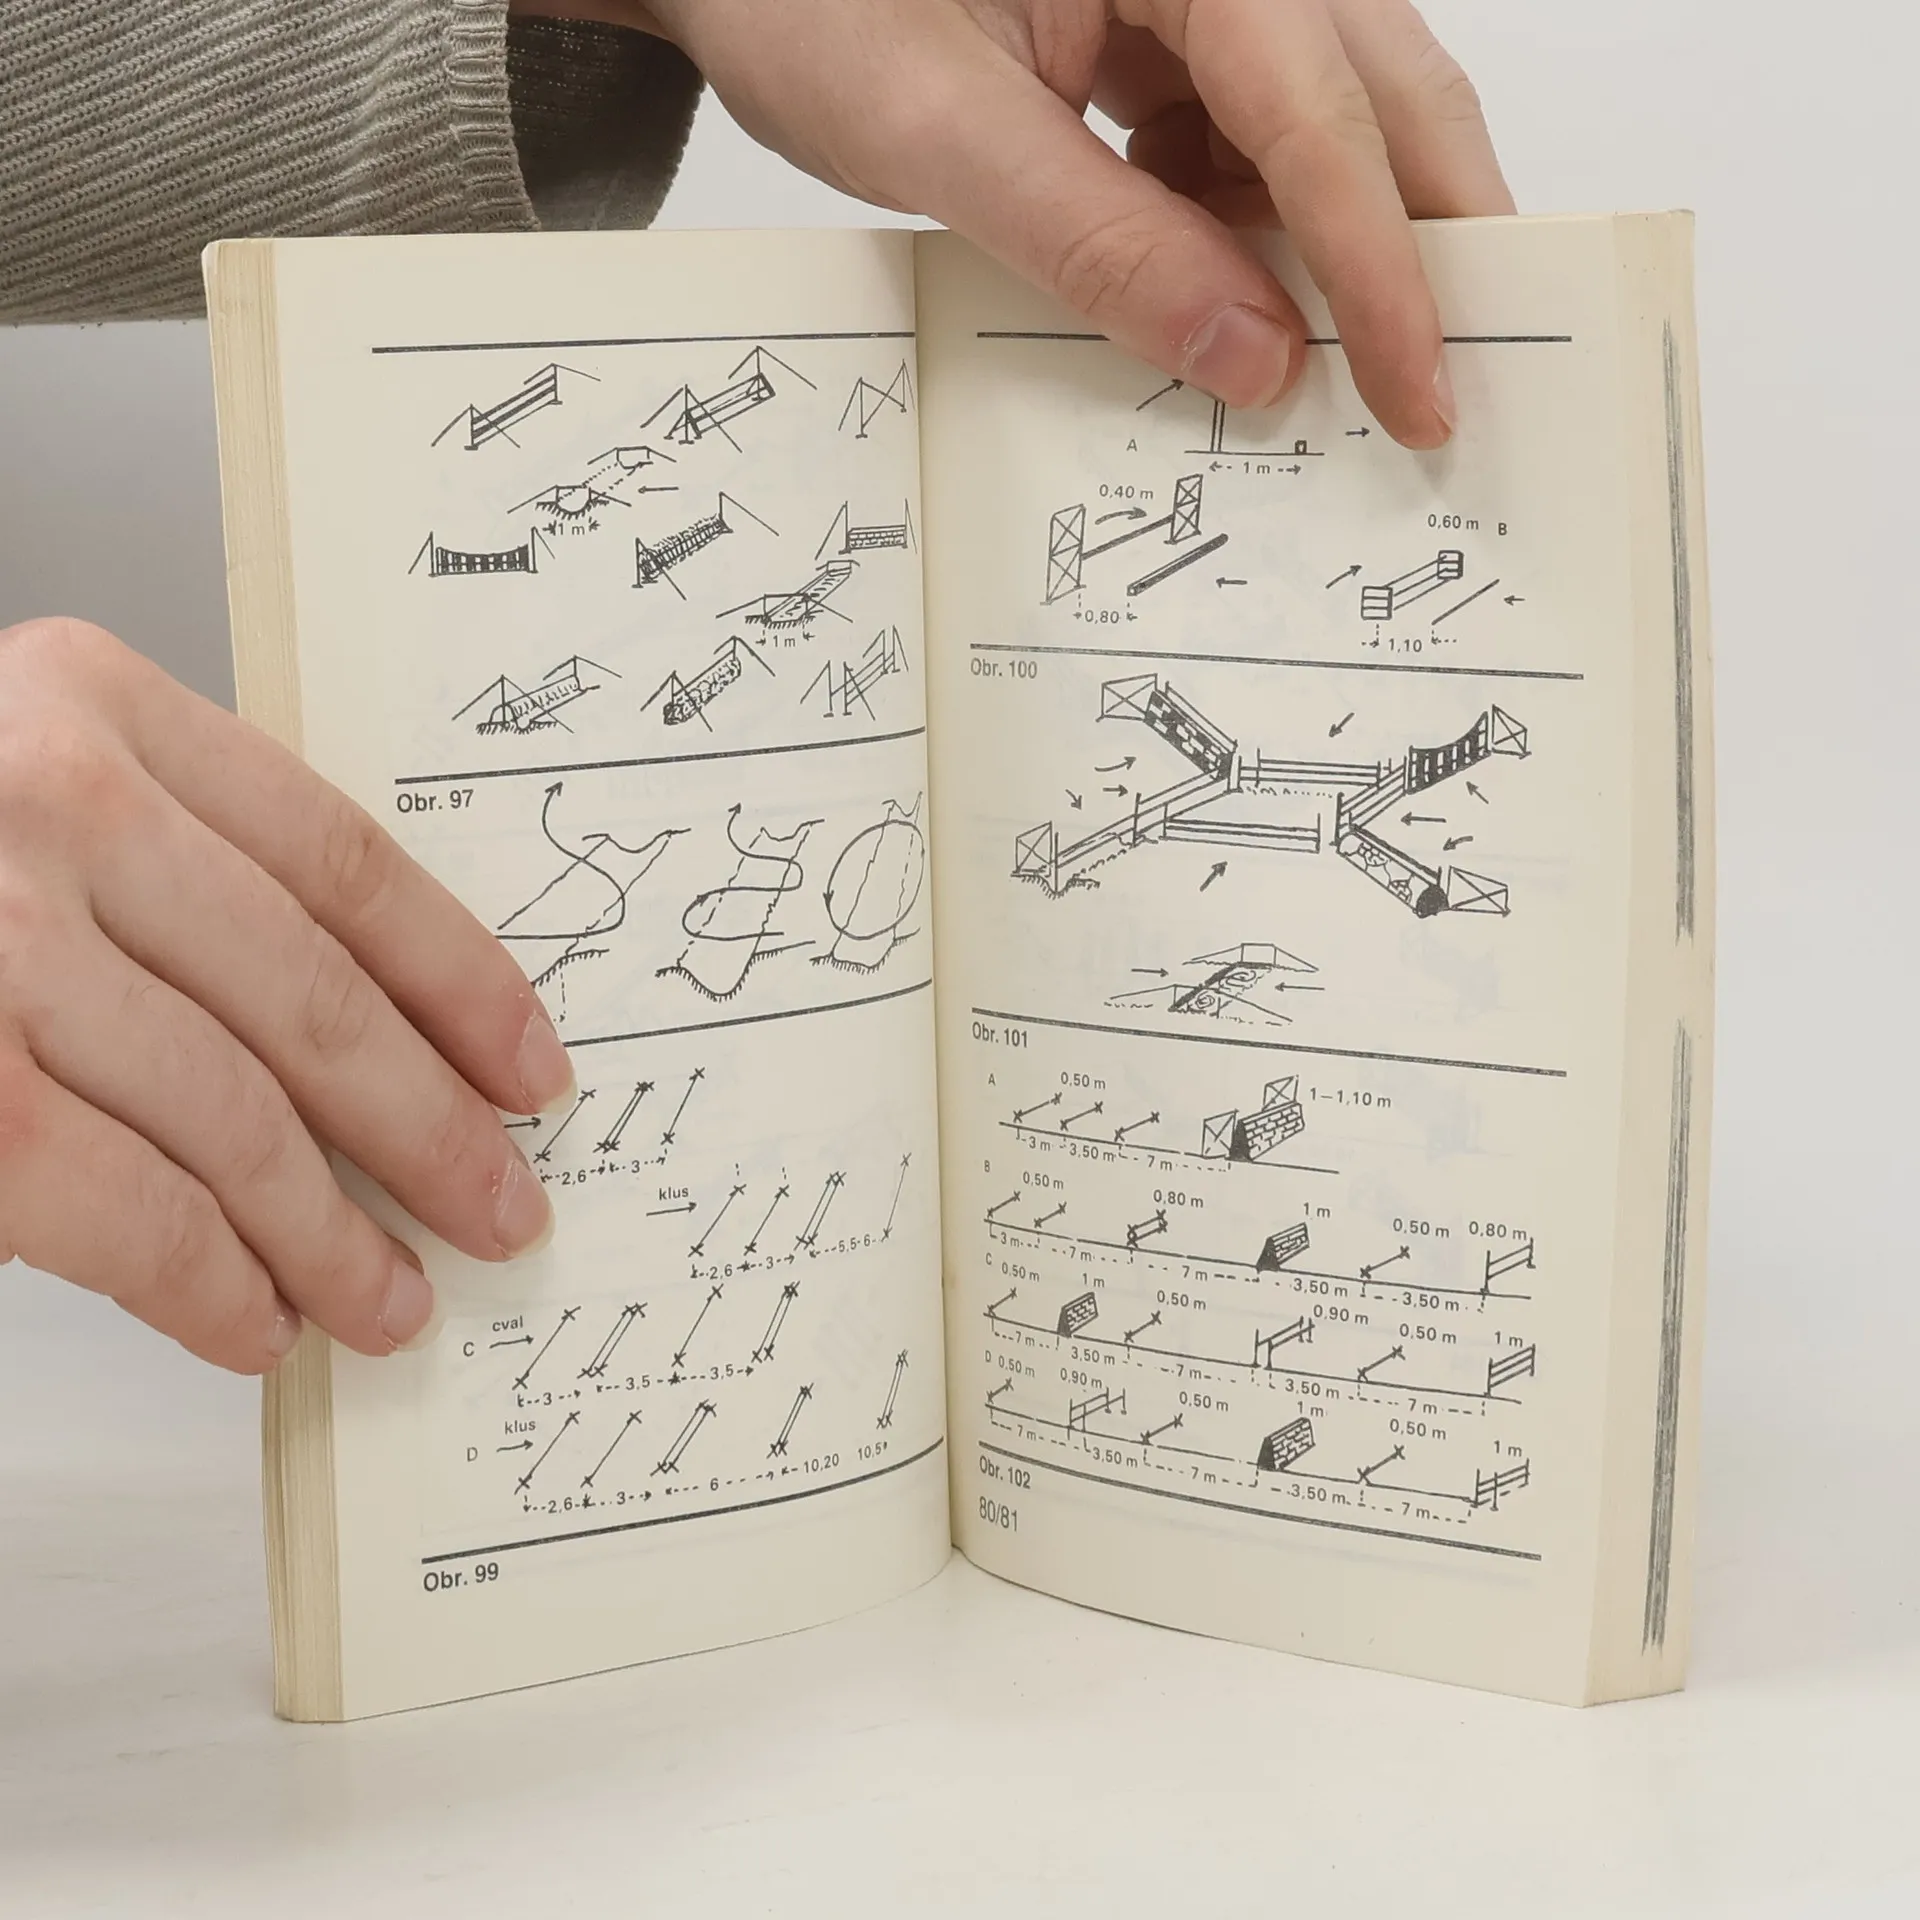 1 m
1 m
Obr. 97
2,6 3
klus
2,6 3 5,5-6
C cval
3 3,5 3,5
D klus
2,6 3 6 10,20 10,5
Obr. 99
A
1 m
0,40 m
0,60 m B
0,80
1,10
Obr. 100
Obr. 101
A 0,50 m 1–1,10 m
3 m 3,50 m 7 m
B 0,50 m 0,80 m 1 m 0,50 m 0,80 m
3 m 7 m 7 m 3,50 m 3,50 m
C 0,50 m 1 m 0,50 m 0,90 m 0,50 m 1 m
7 m 3,50 m 7 m 3,50 m 7 m
D 0,50 m 0,90 m 0,50 m 1 m 0,50 m 1 m
7 m 3,50 m 7 m 3,50 m 7 m
Obr. 102
80/81